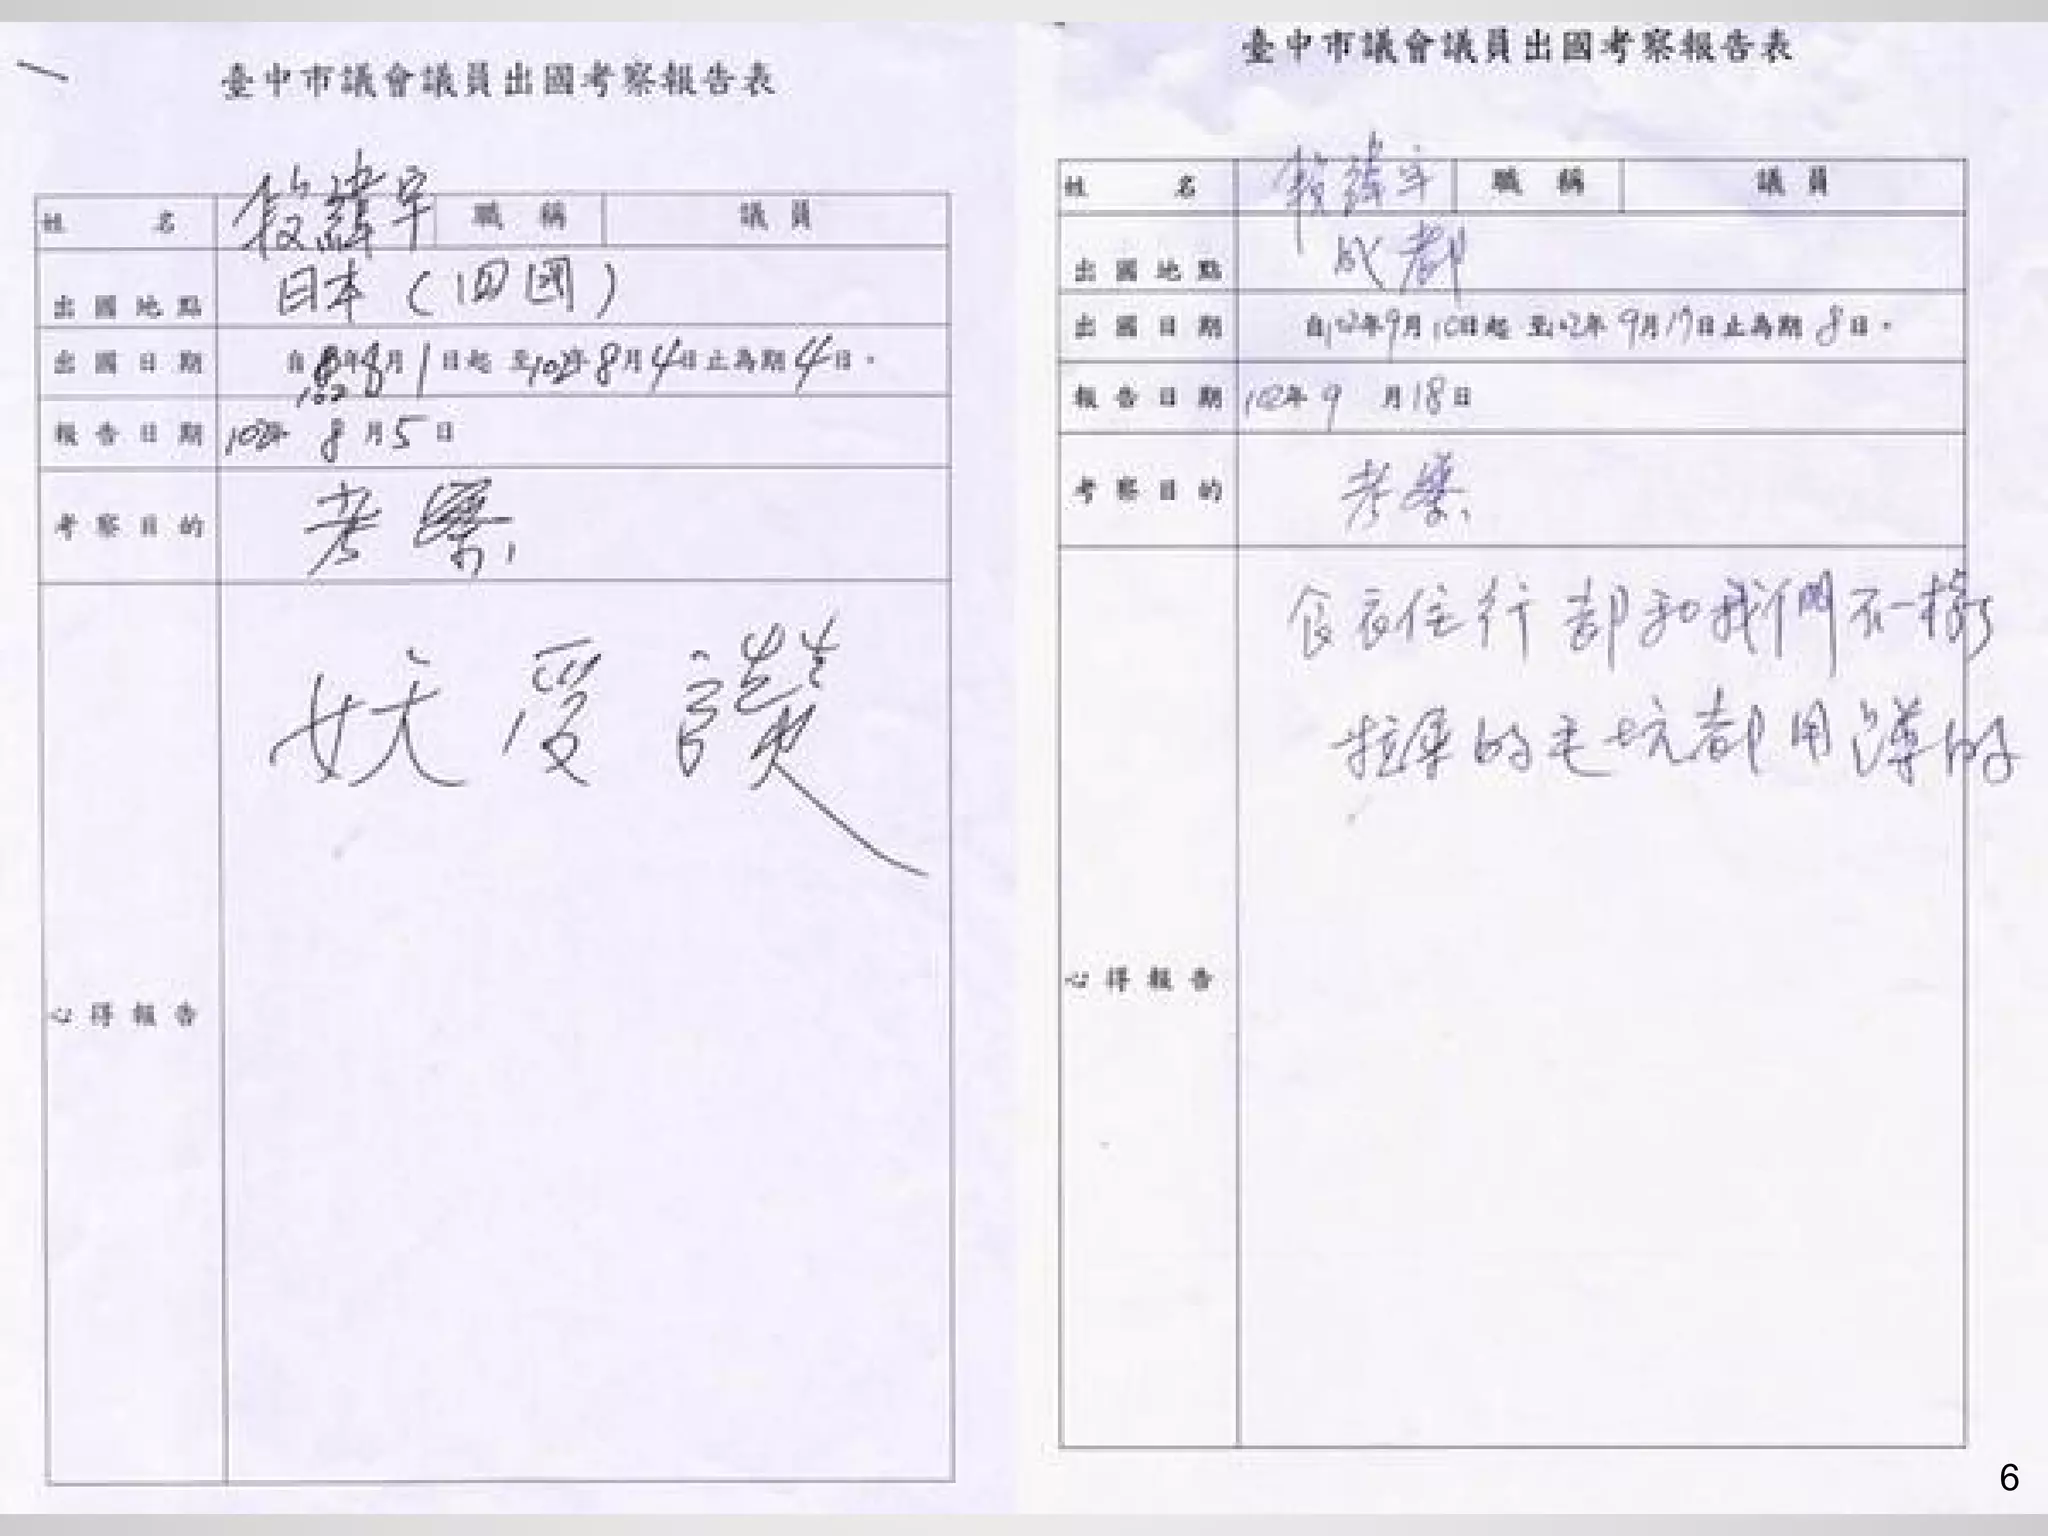 臺中市議會議員出國考察報告表
姓名 段緯宇 職稱 議員
出國地點 日本(四國)
出國日期 自102年8月1日起 至102年8月4日止為期4日。
報告日期 102年 8月5日
考察目的 考察
心得報告
臺中市議會議員出國考察報告表
姓名 段緯宇 職稱 議員
出國地點 成都
出國日期 自102年9月10日起 至102年9月17日止為期8日。
報告日期 102年9月18日
考察目的 考察
食衣住行都和我們不一樣
拉屎的毛坑都用薄的
心得報告
6